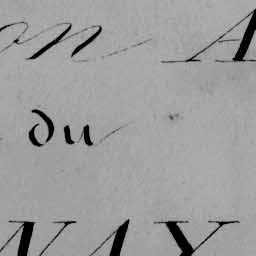 on A
du
NAY